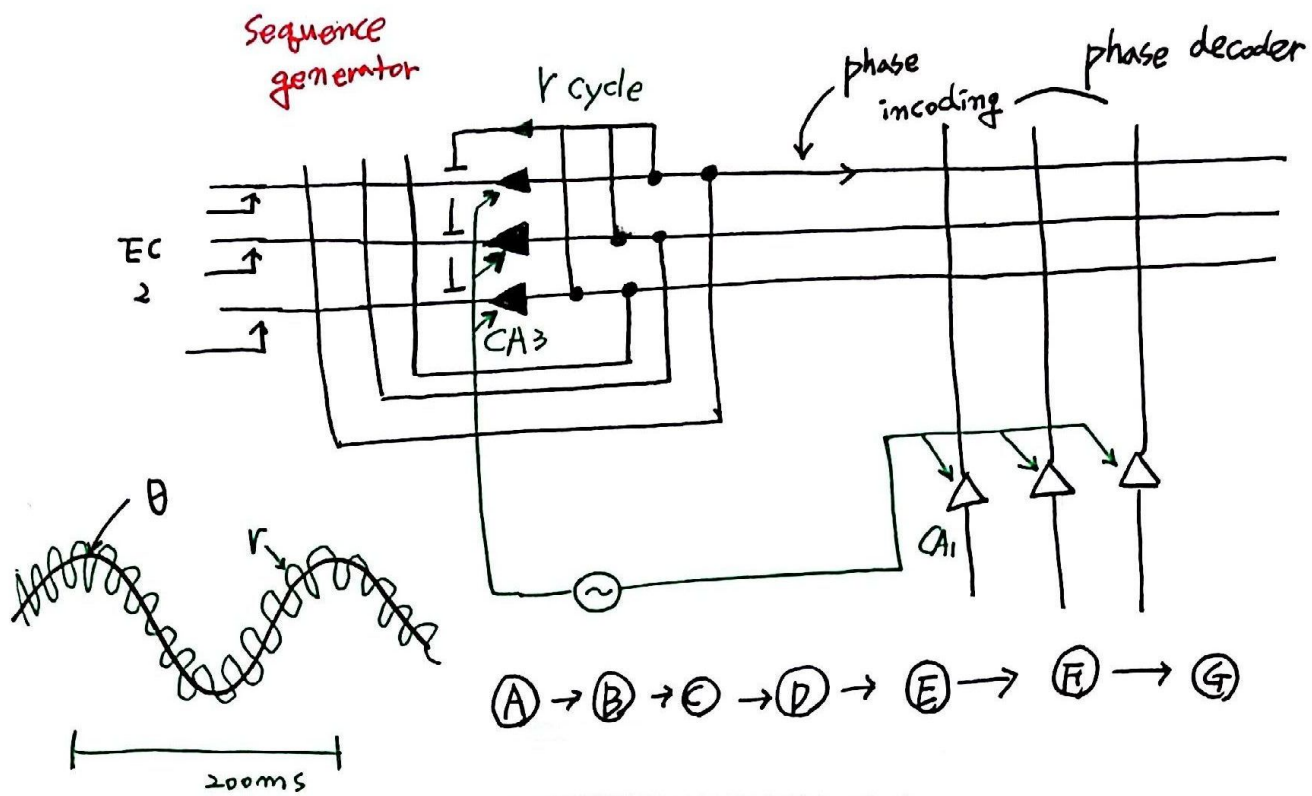 Sequence
generator
r cycle
phase
incoding
phase decoder
EC
2
CA3
θ
r
CA1
A → B → C → D → E → F → G
200ms